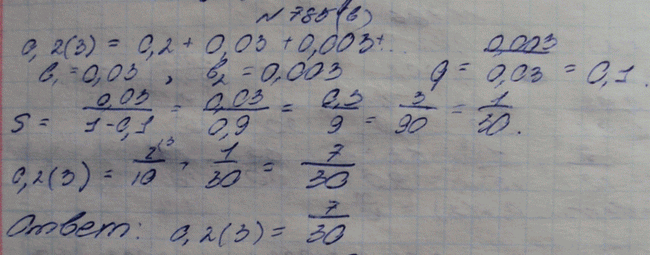 № 785(в)
0,2(3) = 0,2 + 0,03 + 0,003 + ...
b₁ = 0,03 , b₂ = 0,003 q = 0,003/0,03 = 0,1.
S = 0,03/1-0,1 = 0,03/0,9 = 0,3/9 = 3/90 = 1/30.
0,2(3) = 2⁽³/10 + 1/30 = 7/30
Ответ: 0,2(3) = 7/30